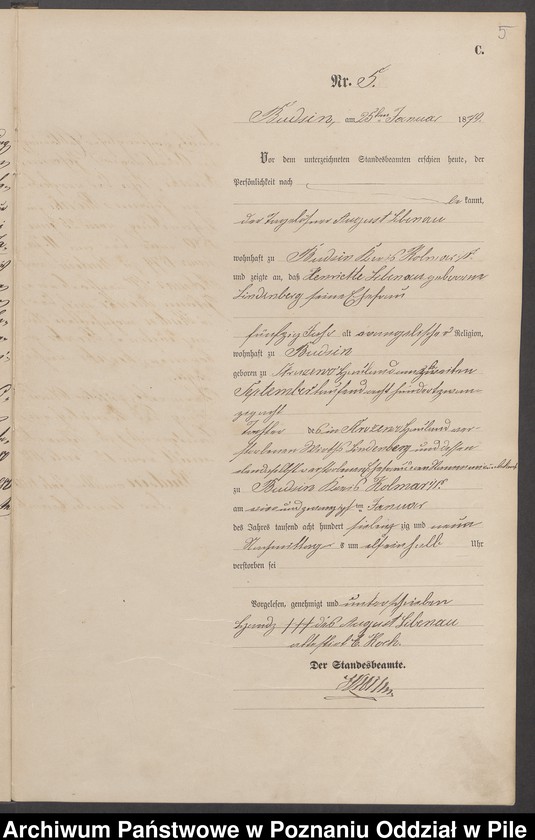 5
C.
Nr. 5.
Budsin, am 25ten Januar 1879.
Vor dem unterzeichneten Standesbeamten erschien heute, der
Persönlichkeit nach
be kannt,
der Tagelöhner August Libenau
wohnhaft zu Budsin Kreis Kolmar i/P.
und zeigte an, daß Henriette Libenau geborene
Lindenberg seine Ehefrau
fünfzig Jahr alt evangelischer Religion,
wohnhaft zu Budsin
geboren zu Hauland am zweiten
September tausend acht hundert zwan-
zig acht
Tochter des in Hauland ver-
storbenen Wirths Lindenberg und dessen
ebendaselbst verstorbenen Ehefrau
zu Budsin Kreis Kolmar i/P.
am vier und zwanzigsten Januar
des Jahrs tausend acht hundert sieben zig und neun
Nachmittag s um elf ein halb Uhr
verstorben sei
Vorgelesen, genehmigt und unterschrieben
Handz. +++ des August Libenau
attestirt E. Koch.
Der Standesbeamte.
Archiwum Państwowe w Poznaniu Oddział w Pile